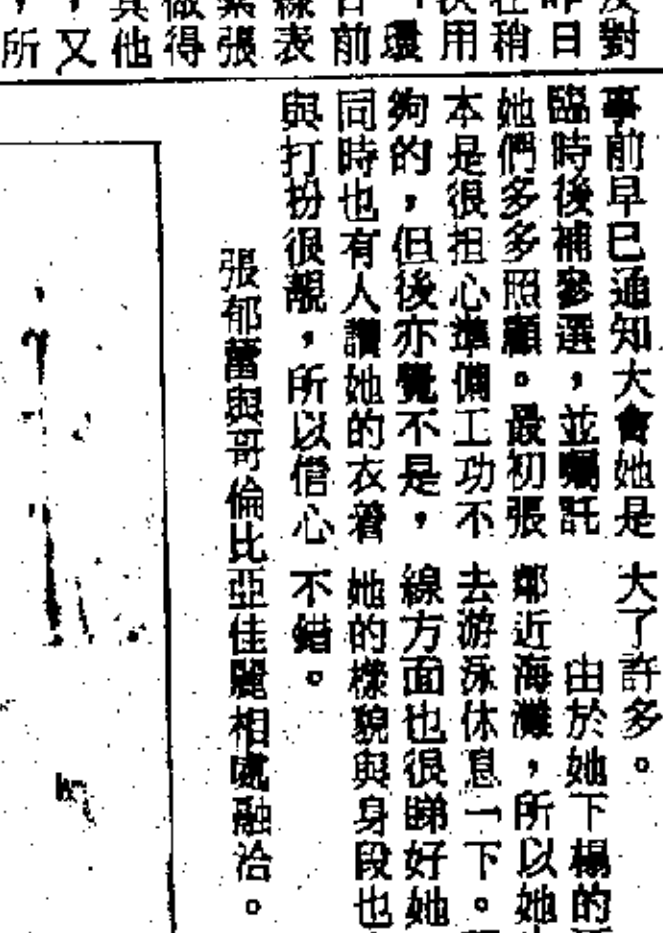 對
昨日
在稍
用
環
日前
線表
緊張
做得
其他
，又
，所
事前早已通知大會她是
臨時後補參選，並囑託
她們多多照顧。最初張
本是很担心準備工功不
夠的，但後亦覺不是，
同時也有人讚她的衣着
與打扮很靚，所以信心
大了許多。
由於她下榻的
鄰近海灘，所以她
去游泳休息一下。
線方面也很睇好她
她的樣貌與身段也
不錯。
張郁蕾與哥倫比亞佳麗相處融洽。